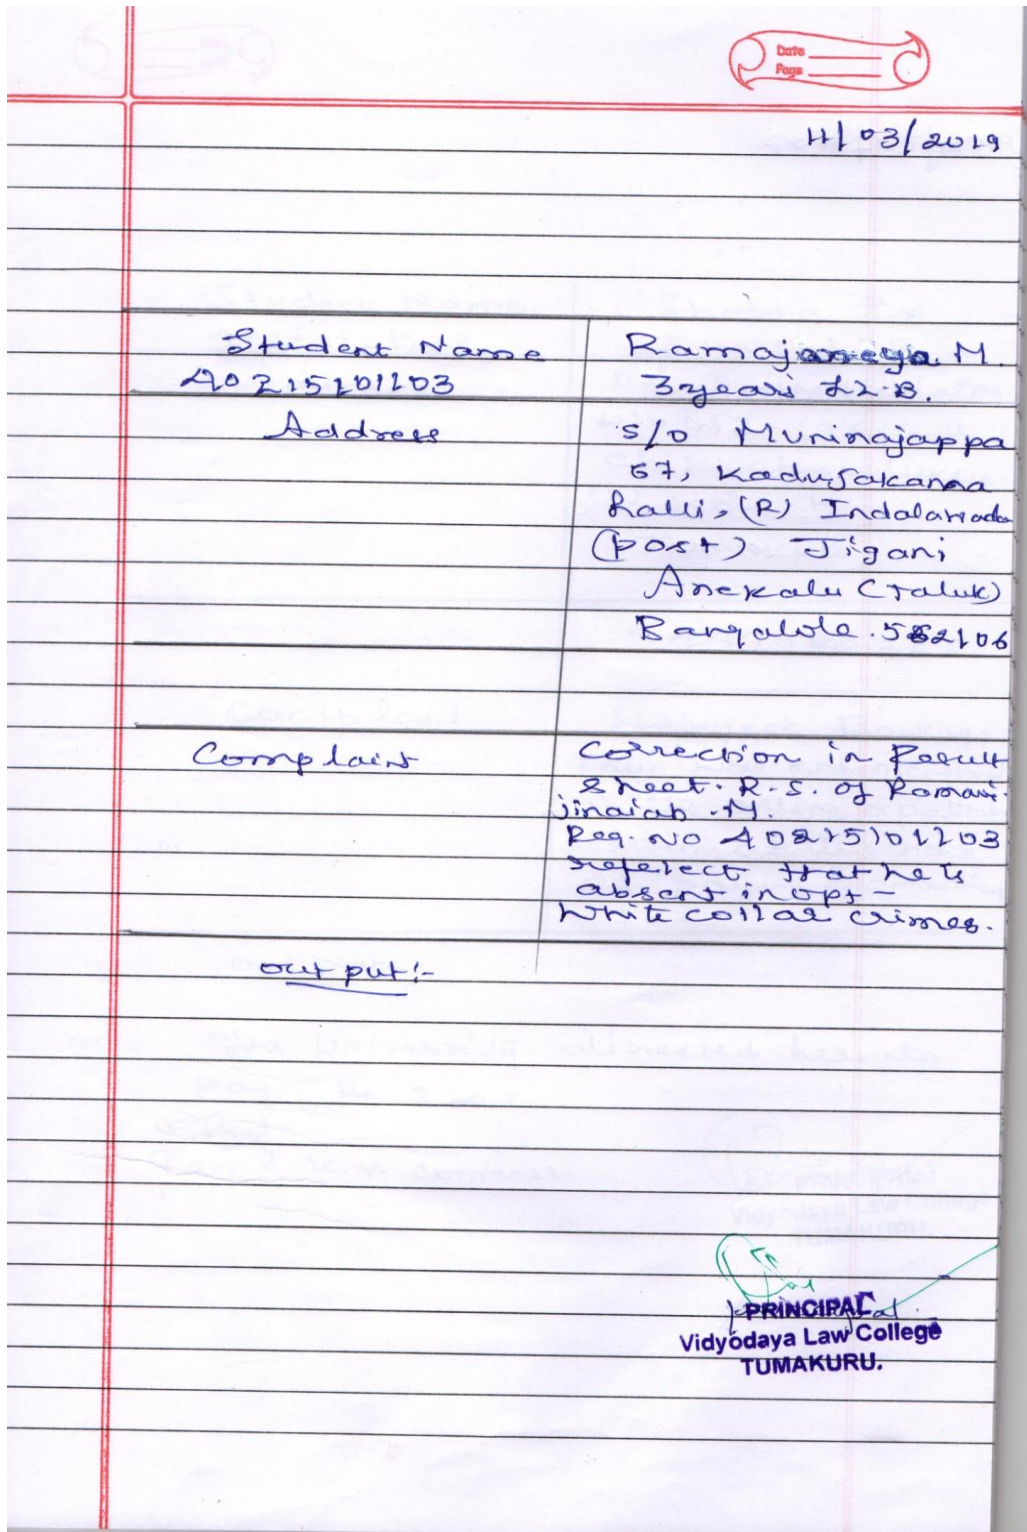 Date
Page
11/03/2019
Student Name Ramajaneya M
A0215101103 3 years LL.B.
Address S/o Munirajappa
67, Kadujakanna
halli, (R) Indalawada
(post) Jigani
Anekalu (Taluk)
Bangalole. 562106
Complaint Correction in Result
Sheet. R.S. of
jinaiah .M.
Reg. No A0215101103
refelect that he is
absent in opt -
White collar crimes.
out put:-
PRINCIPAL
Vidyodaya Law College
TUMAKURU.